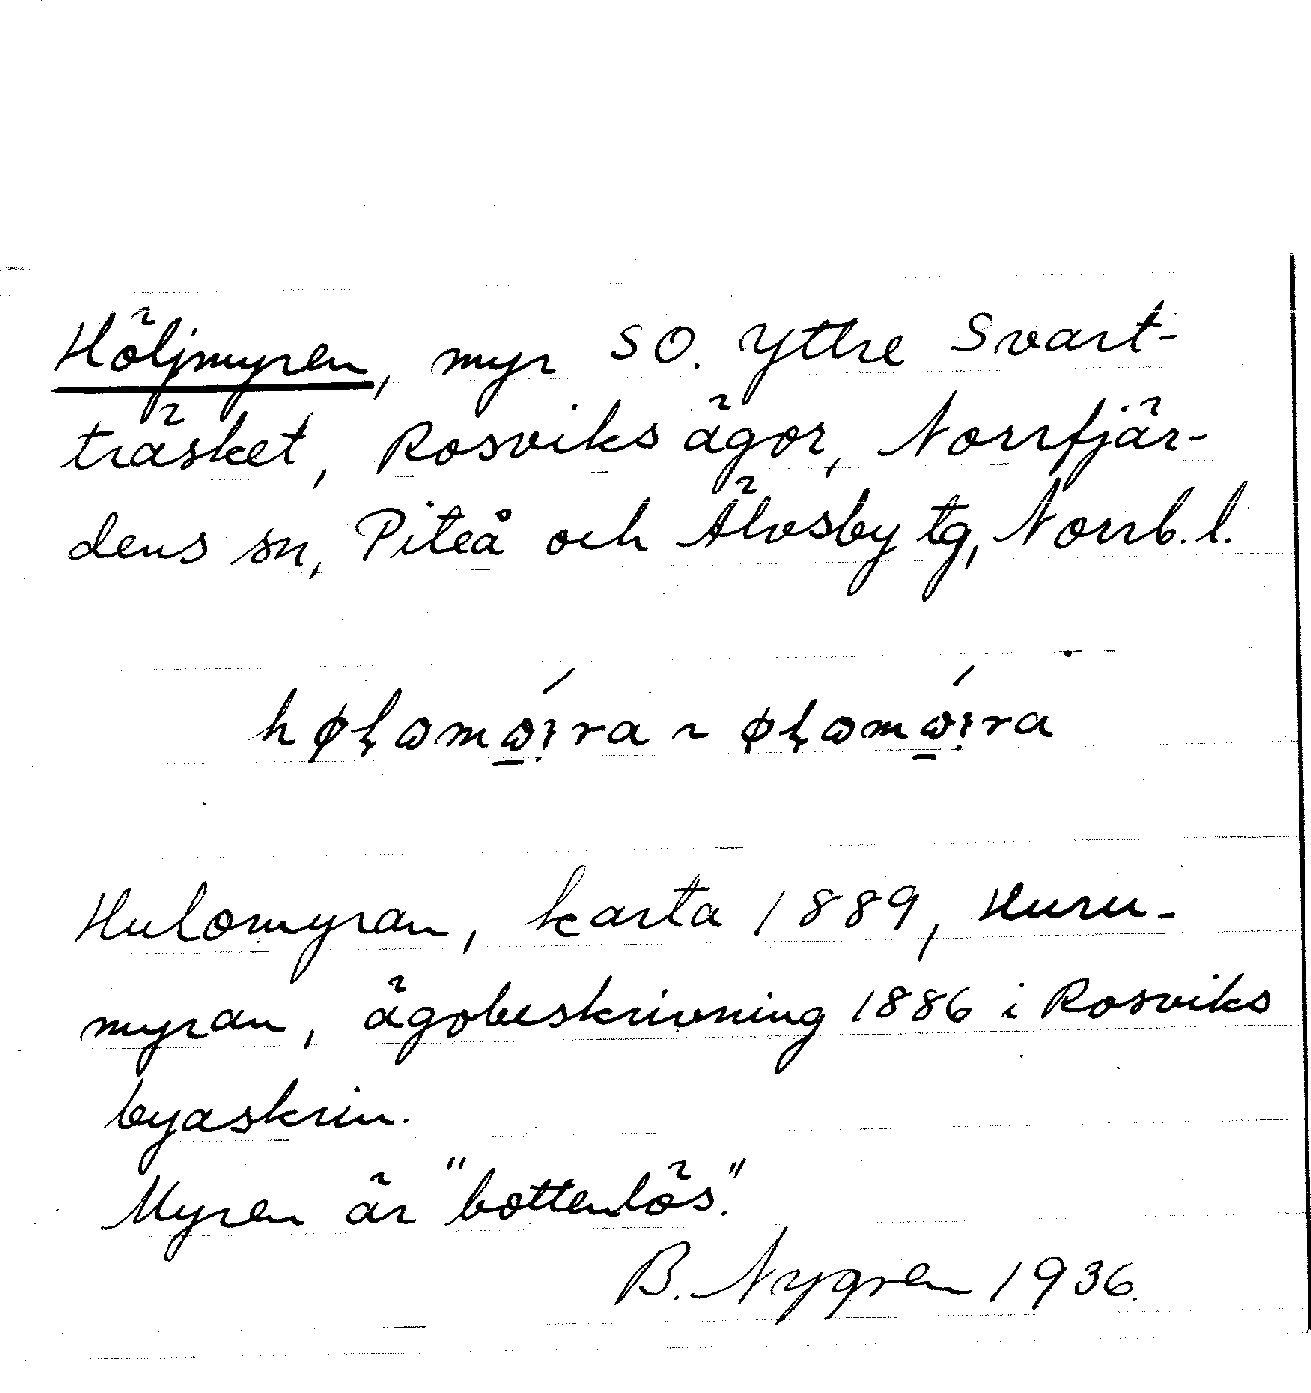 Höljmyren, myr SO. Yttre Svart-
träsket, Rosviks ägor, Norrfjär-
dens sn, Piteå och Älvsby tg, Norrb. l.
Hulomyran, karta 1889, Huru-
myran, ägobeskrivning 1886 i Rosviks
byaskrin.
Myren är "bottenlös".
B. Nygren 1936.